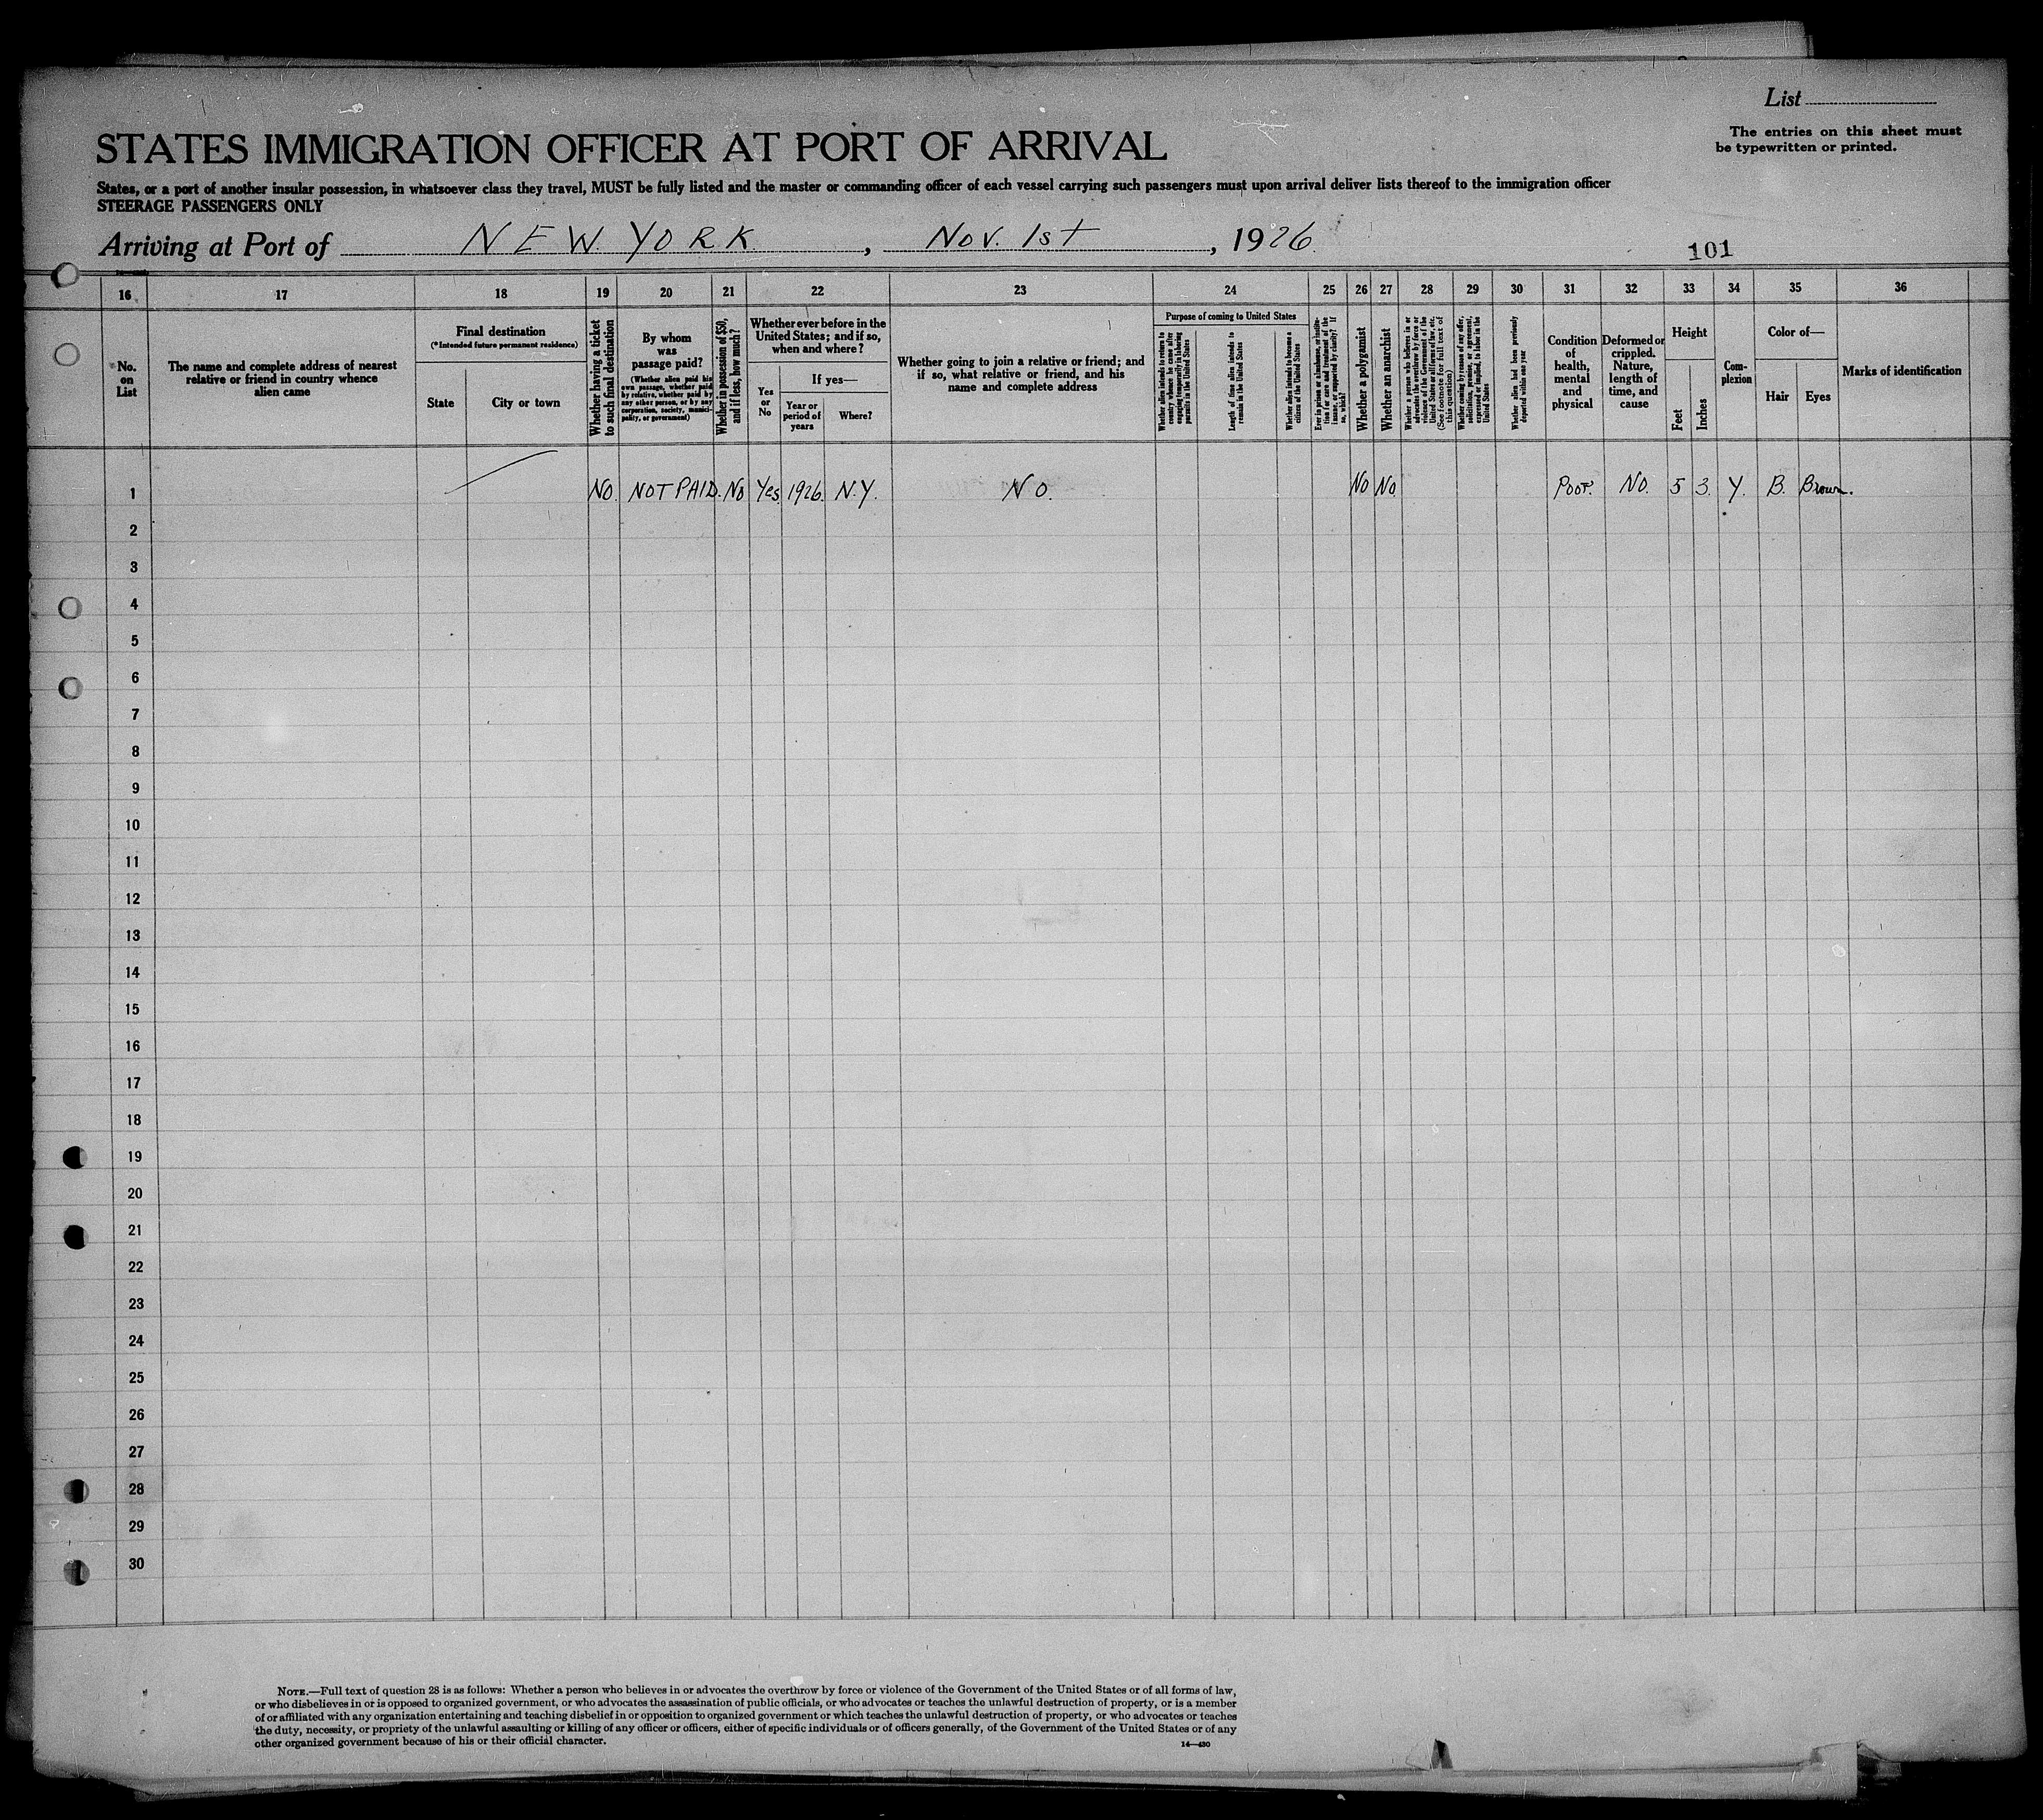 List
The entries on this sheet must
be typewritten or printed.
STATES IMMIGRATION OFFICER AT PORT OF ARRIVAL
States, or a port of another insular possession, in whatsoever class they travel, MUST be fully listed and the master or commanding officer of each vessel carrying such passengers must upon arrival deliver lists thereof to the immigration officer
STEERAGE PASSENGERS ONLY
Arriving at Port of NEW YORK, Nov. 1st, 1926
101
16 17 18 19 20 21 22 23 24 25 26 27 28 29 30 31 32 33 34 35 36
No.
on
List
The name and complete address of nearest
relative or friend in country whence
alien came
Final destination
(*Intended future permanent residence)
State
City or town
Whether having a ticket
to such final destination
By whom
was
passage paid?
(Whether alien paid his
own passage, whether paid
by relative, whether paid by
any other person, or by any
corporation, society, munici-
pality, or government)
Whether in possession of $50,
and if less, how much?
Whether ever before in the
United States; and if so,
when and where?
Yes
or
No
If yes—
Year or
period of
years
Where?
Whether going to join a relative or friend; and
if so, what relative or friend, and his
name and complete address
Purpose of coming to United States
Whether alien intends to return to
country whence he came after
engaging temporarily in laboring
pursuits in the United States
Length of time alien intends to
remain in the United States
Whether alien intends to become a
citizen of the United States
Ever in prison or almshouse, or institu-
tion for care and treatment of the
insane, or supported by charity? If
so, which?
Whether a polygamist
Whether an anarchist
Whether a person who believes in or
advocates the overthrow by force or
violence of the Government of the
United States or all forms of law, etc.
(See footnote for full text of
this question)
Whether coming by reason of any offer,
solicitation, promise, or agreement,
expressed or implied, to labor in the
United States
Whether alien had been previously
deported within one year
Condition
of
health,
mental
and
physical
Deformed or
crippled.
Nature,
length of
time, and
cause
Height
Feet
Inches
Com-
plexion
Color of—
Hair
Eyes
Marks of identification
1 No. NOT PAID. No Yes 1926. N.Y. No. No No. Poor. No. 5 3. Y. B. Brown.
2
3
4
5
6
7
8
9
10
11
12
13
14
15
16
17
18
19
20
21
22
23
24
25
26
27
28
29
30
NOTE.—Full text of question 28 is as follows: Whether a person who believes in or advocates the overthrow by force or violence of the Government of the United States or of all forms of law,
or who disbelieves in or is opposed to organized government, or who advocates the assassination of public officials, or who advocates or teaches the unlawful destruction of property, or is a member
of or affiliated with any organization entertaining and teaching disbelief in or opposition to organized government or which teaches the unlawful destruction of property, or who advocates or teaches
the duty, necessity, or propriety of the unlawful assaulting or killing of any officer or officers, either of specific individuals or of officers generally, of the Government of the United States or of any
other organized government because of his or their official character.
14—430